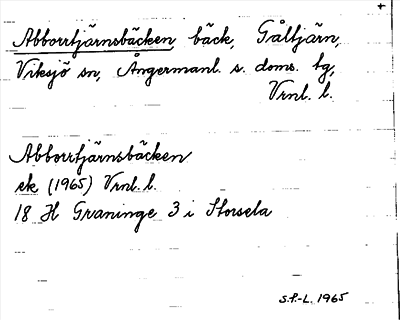 Abborrtjärnsbäcken bäck, Gåltjärn,
Viksjö sn, Ångermanl. s. doms. tg,
Vrnl. l.
Abborrtjärnsbäcken
ek (1965) Vrnl. l.
18 H Graninge 3 i Storsela
S.F.-L. 1965